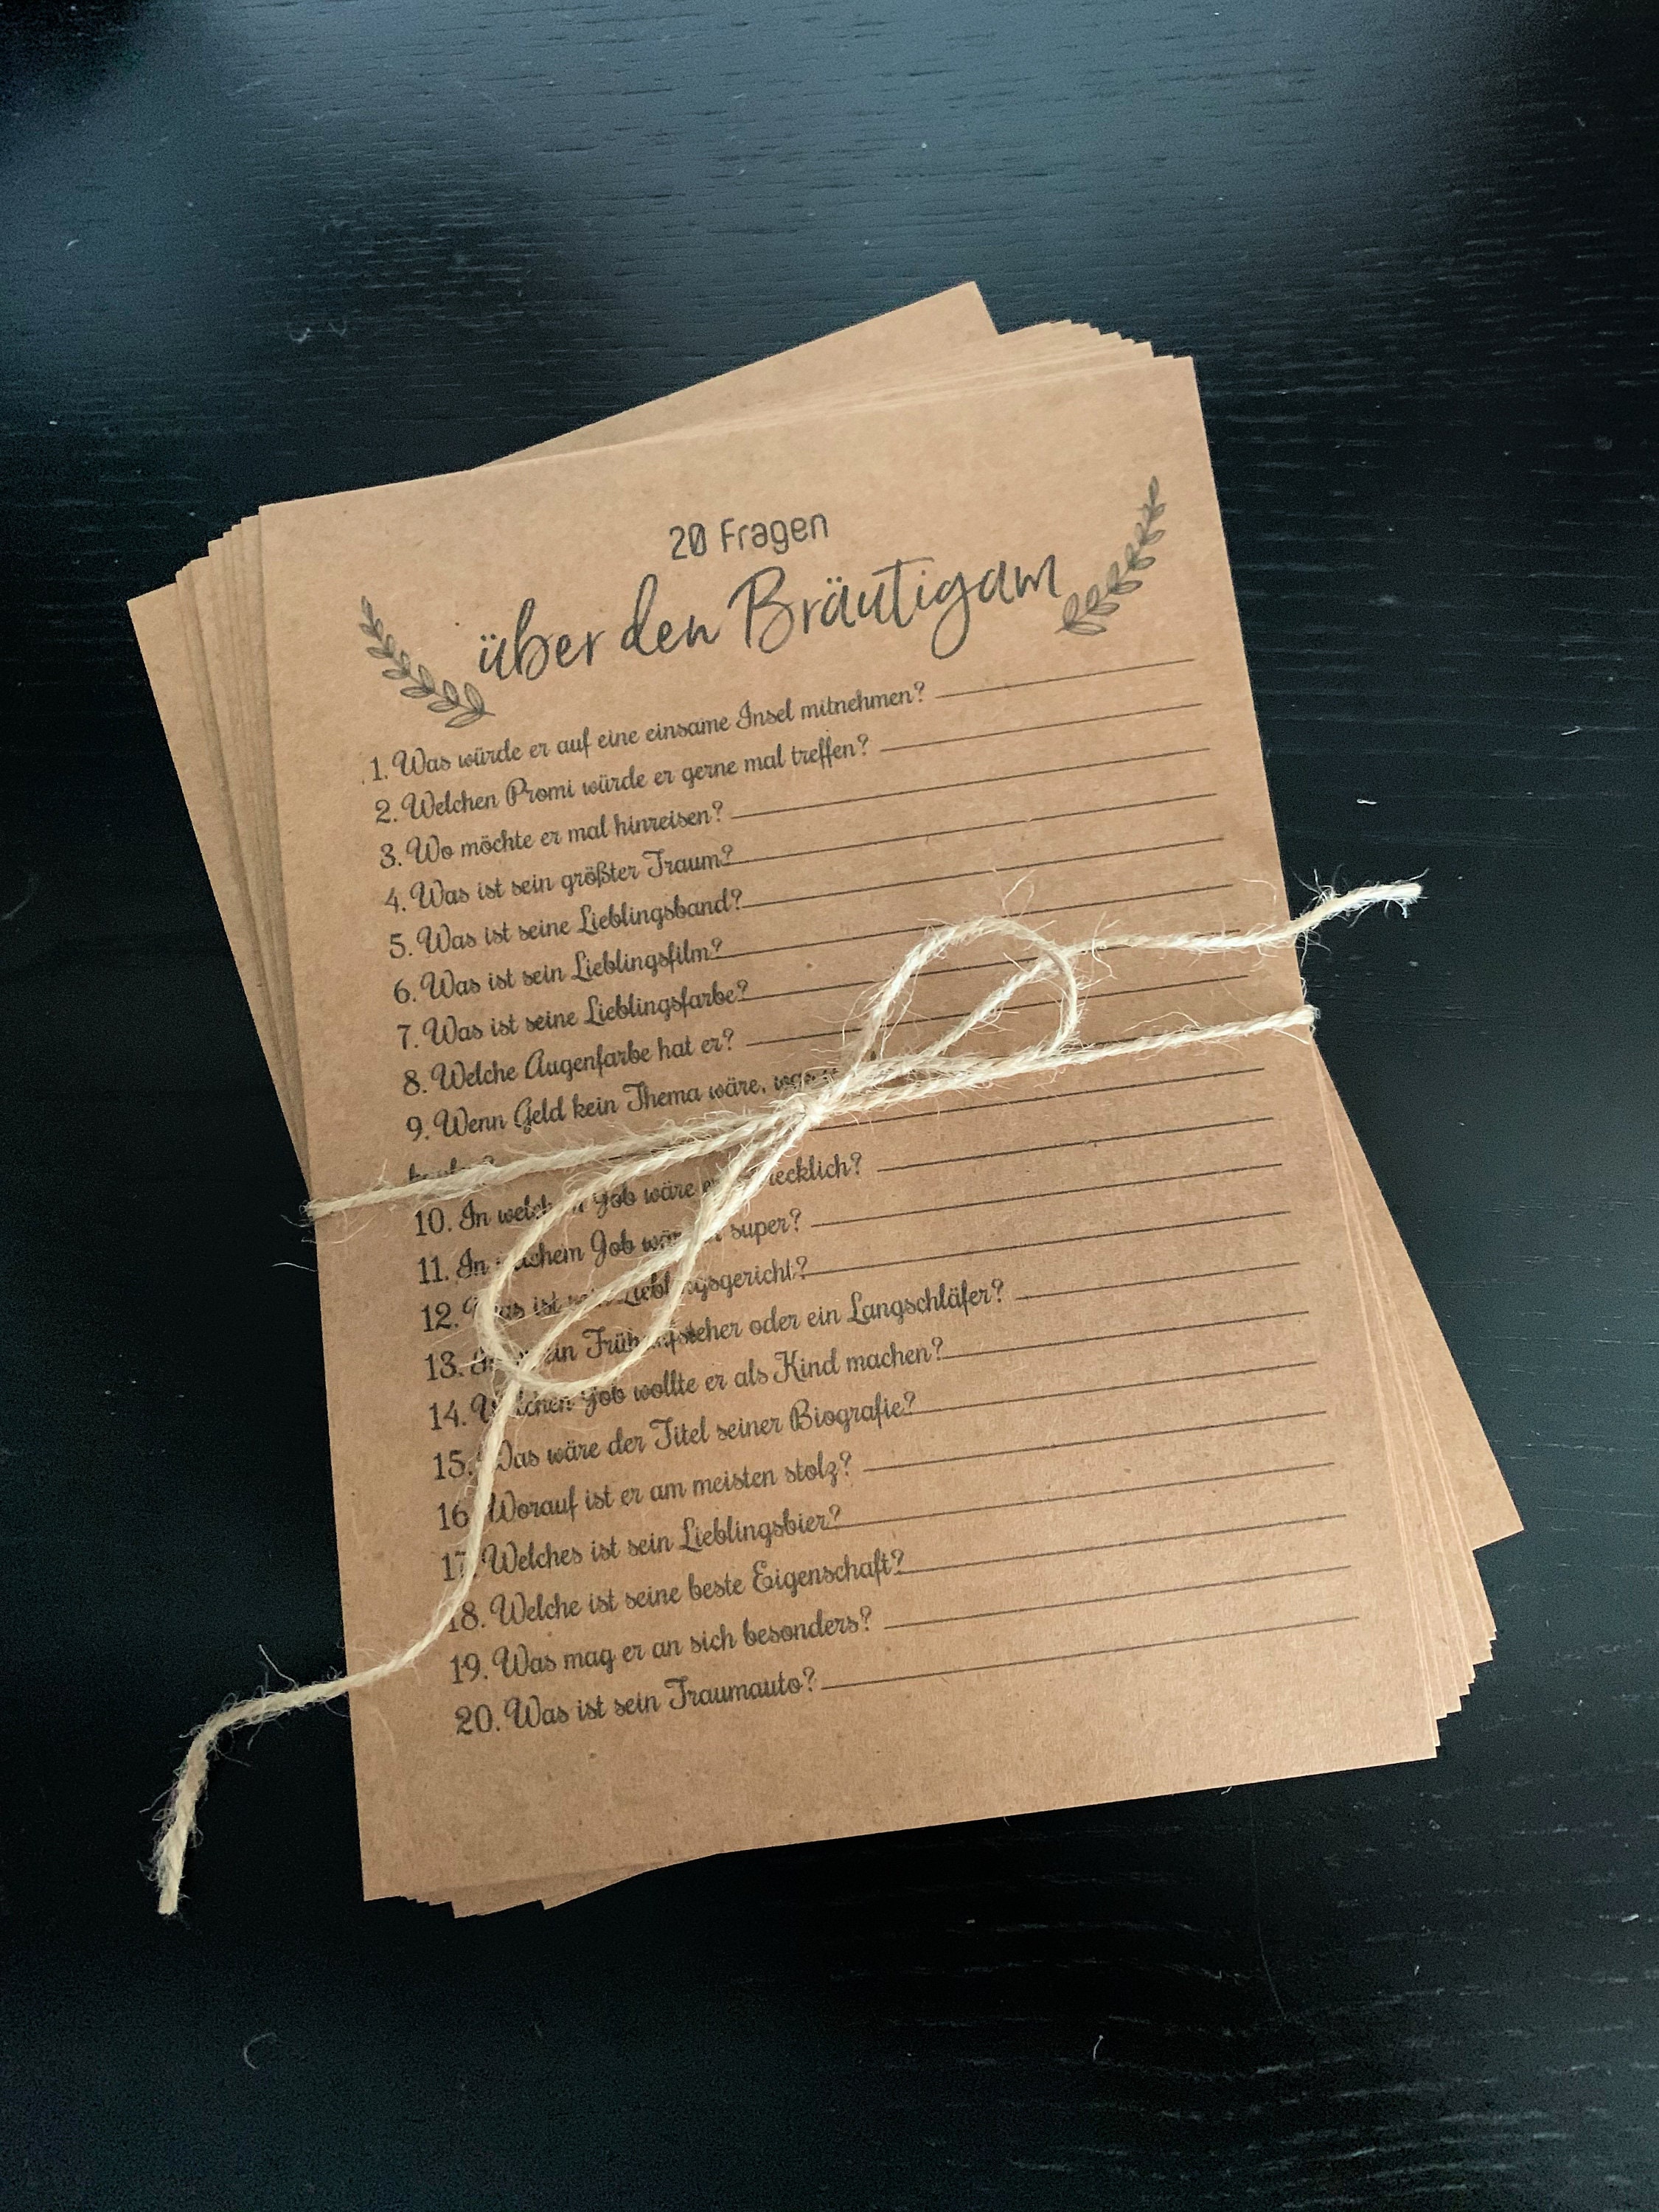 20 Fragen
über den Bräutigam
1. Was würde er auf eine einsame Insel mitnehmen?
2. Welchen Promi würde er gerne mal treffen?
3. Wo möchte er mal hinreisen?
4. Was ist sein größter Traum?
5. Was ist seine Lieblingsband?
6. Was ist sein Lieblingsfilm?
7. Was ist seine Lieblingsfarbe?
8. Welche Augenfarbe hat er?
9. Wenn Geld kein Thema wäre, was
10. In welchem Job wäre er schrecklich?
11. In welchem Job wäre er super?
12. Was ist sein Lieblingsgericht?
13. Ist er ein Frühaufsteher oder ein Langschläfer?
14. Welchen Job wollte er als Kind machen?
15. Was wäre der Titel seiner Biografie?
16. Worauf ist er am meisten stolz?
17. Welches ist sein Lieblingsbier?
18. Welche ist seine beste Eigenschaft?
19. Was mag er an sich besonders?
20. Was ist sein Traumauto?